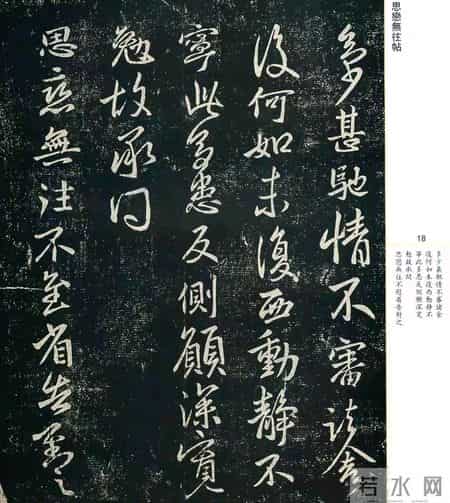 思戀無往帖
多少甚馳情不審諸舍
復何如未復西動靜不
寧此多患反側願深寬
勉故承問
思戀無往不至省告對之
18
多少甚馳情不審諸舍
復何如未復西動靜不
寧此多患反側願深寬
勉故承問
思戀無往不至省告對之
若水网